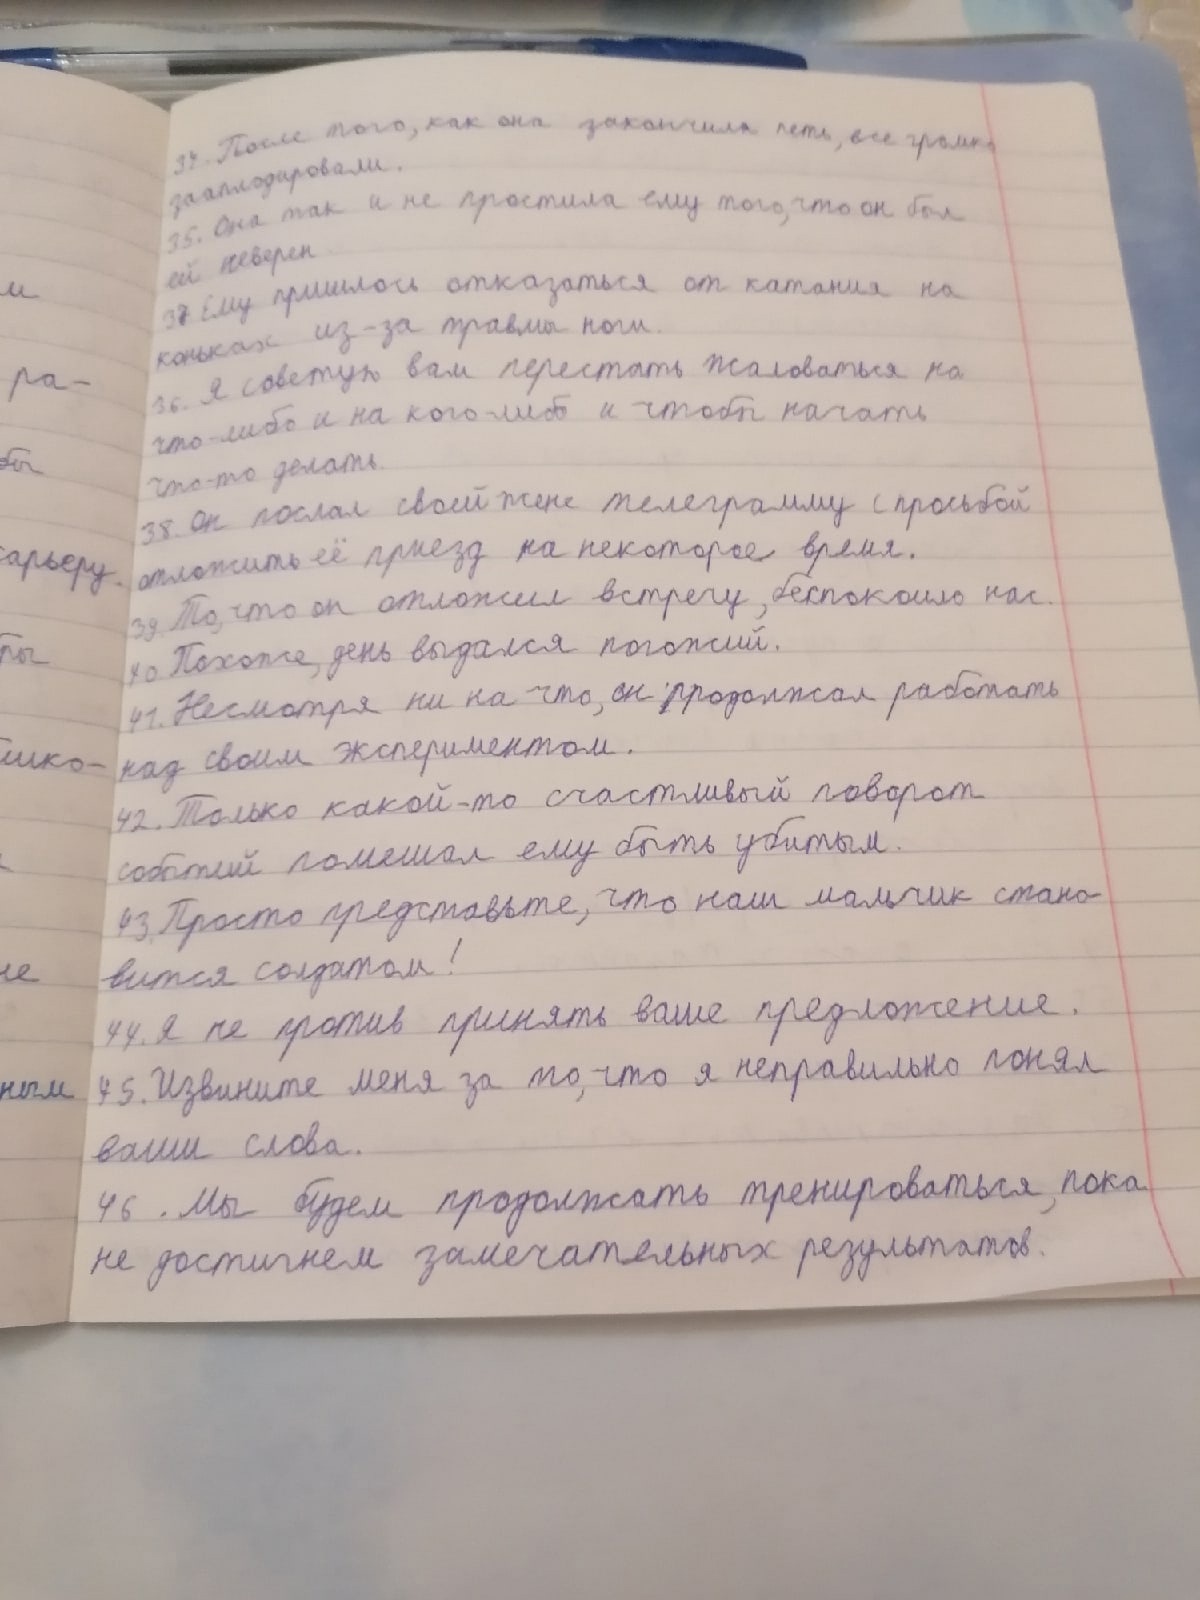 34. После того, как она закончила петь, все громко
зааплодировали.
35. Она так и не простила ему того, что он был
ей неверен.
37 Ему пришлось отказаться от катания на
коньках из-за травмы ноги.
36. Я советую вам перестать жаловаться на
что-либо и на кого-либо и чтобы начать
что-то делать.
38. Он послал своей жене телеграмму с просьбой
отложить её приезд на некоторое время.
39. То, что он отложил встречу, беспокоило нас.
40 Похоже, день выдался погожий.
41. Несмотря ни на что, он продолжал работать
над своим экспериментом.
42. Только какой-то счастливый поворот
событий помешал ему быть убитым.
43. Просто представьте, что наш мальчик стано-
вится солдатом!
44. Я не против принять ваше предложение.
45. Извините меня за то, что я неправильно понял
ваши слова.
46. Мы будем продолжать тренироваться, пока
не достигнем замечательных результатов.
ра-
карьеру.